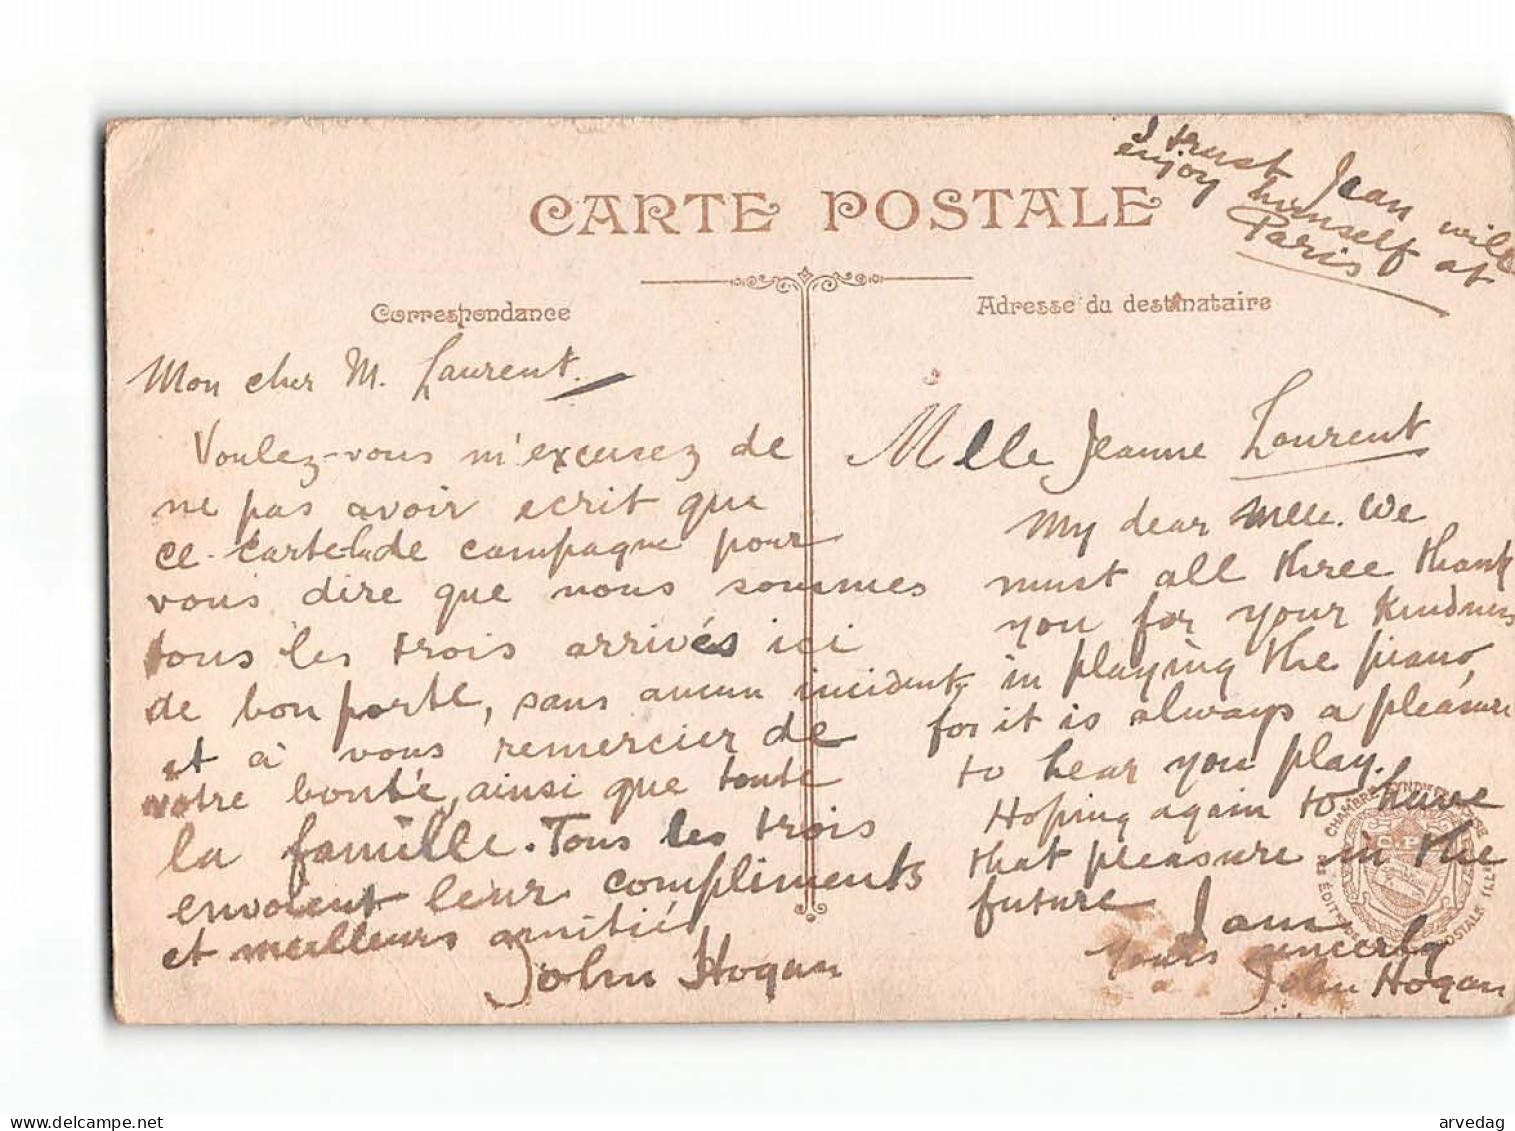 I trust Jean will
enjoy himself at
Paris
CARTE POSTALE
Correspondance
Mon cher M. Laurent.
Voulez-vous m'excusez de
ne pas avoir ecrit que
ce carte de campagne pour
vous dire que nous sommes
tous les trois arrivés ici
de bon porte, sans aucun incident,
et à vous remercier de
votre bonté, ainsi que toute
la famille. Tous les trois
envoient leur compliments
et meilleurs amitiés
John Hogan
Adresse du destinataire
Mlle Jeanne Laurent
My dear Mlle. We
must all three thank
you for your kindness
in playing the piano,
for it is always a pleasure
to hear you play.
Hoping again to have
that pleasure in the
future I am
Yours sincerly
John Hogan
CHAMBRE SYNDICALE
C.P.
POSTALE ILL
delcampe.net
arvedag